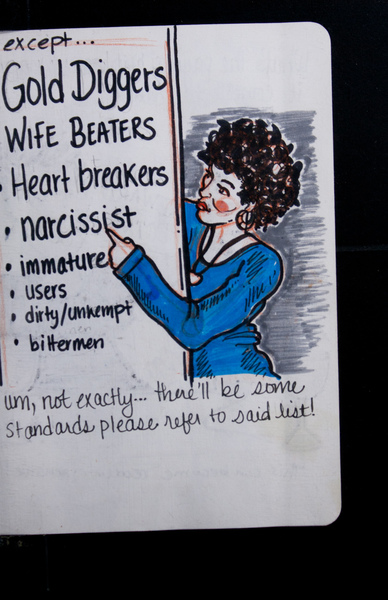 except...
Gold Diggers
WIFE BEATERS
• Heart breakers
• narcissist
• immature
• users
• dirty/unkempt
• bittermen
um, not exactly... there'll be some
standards please refer to said list!